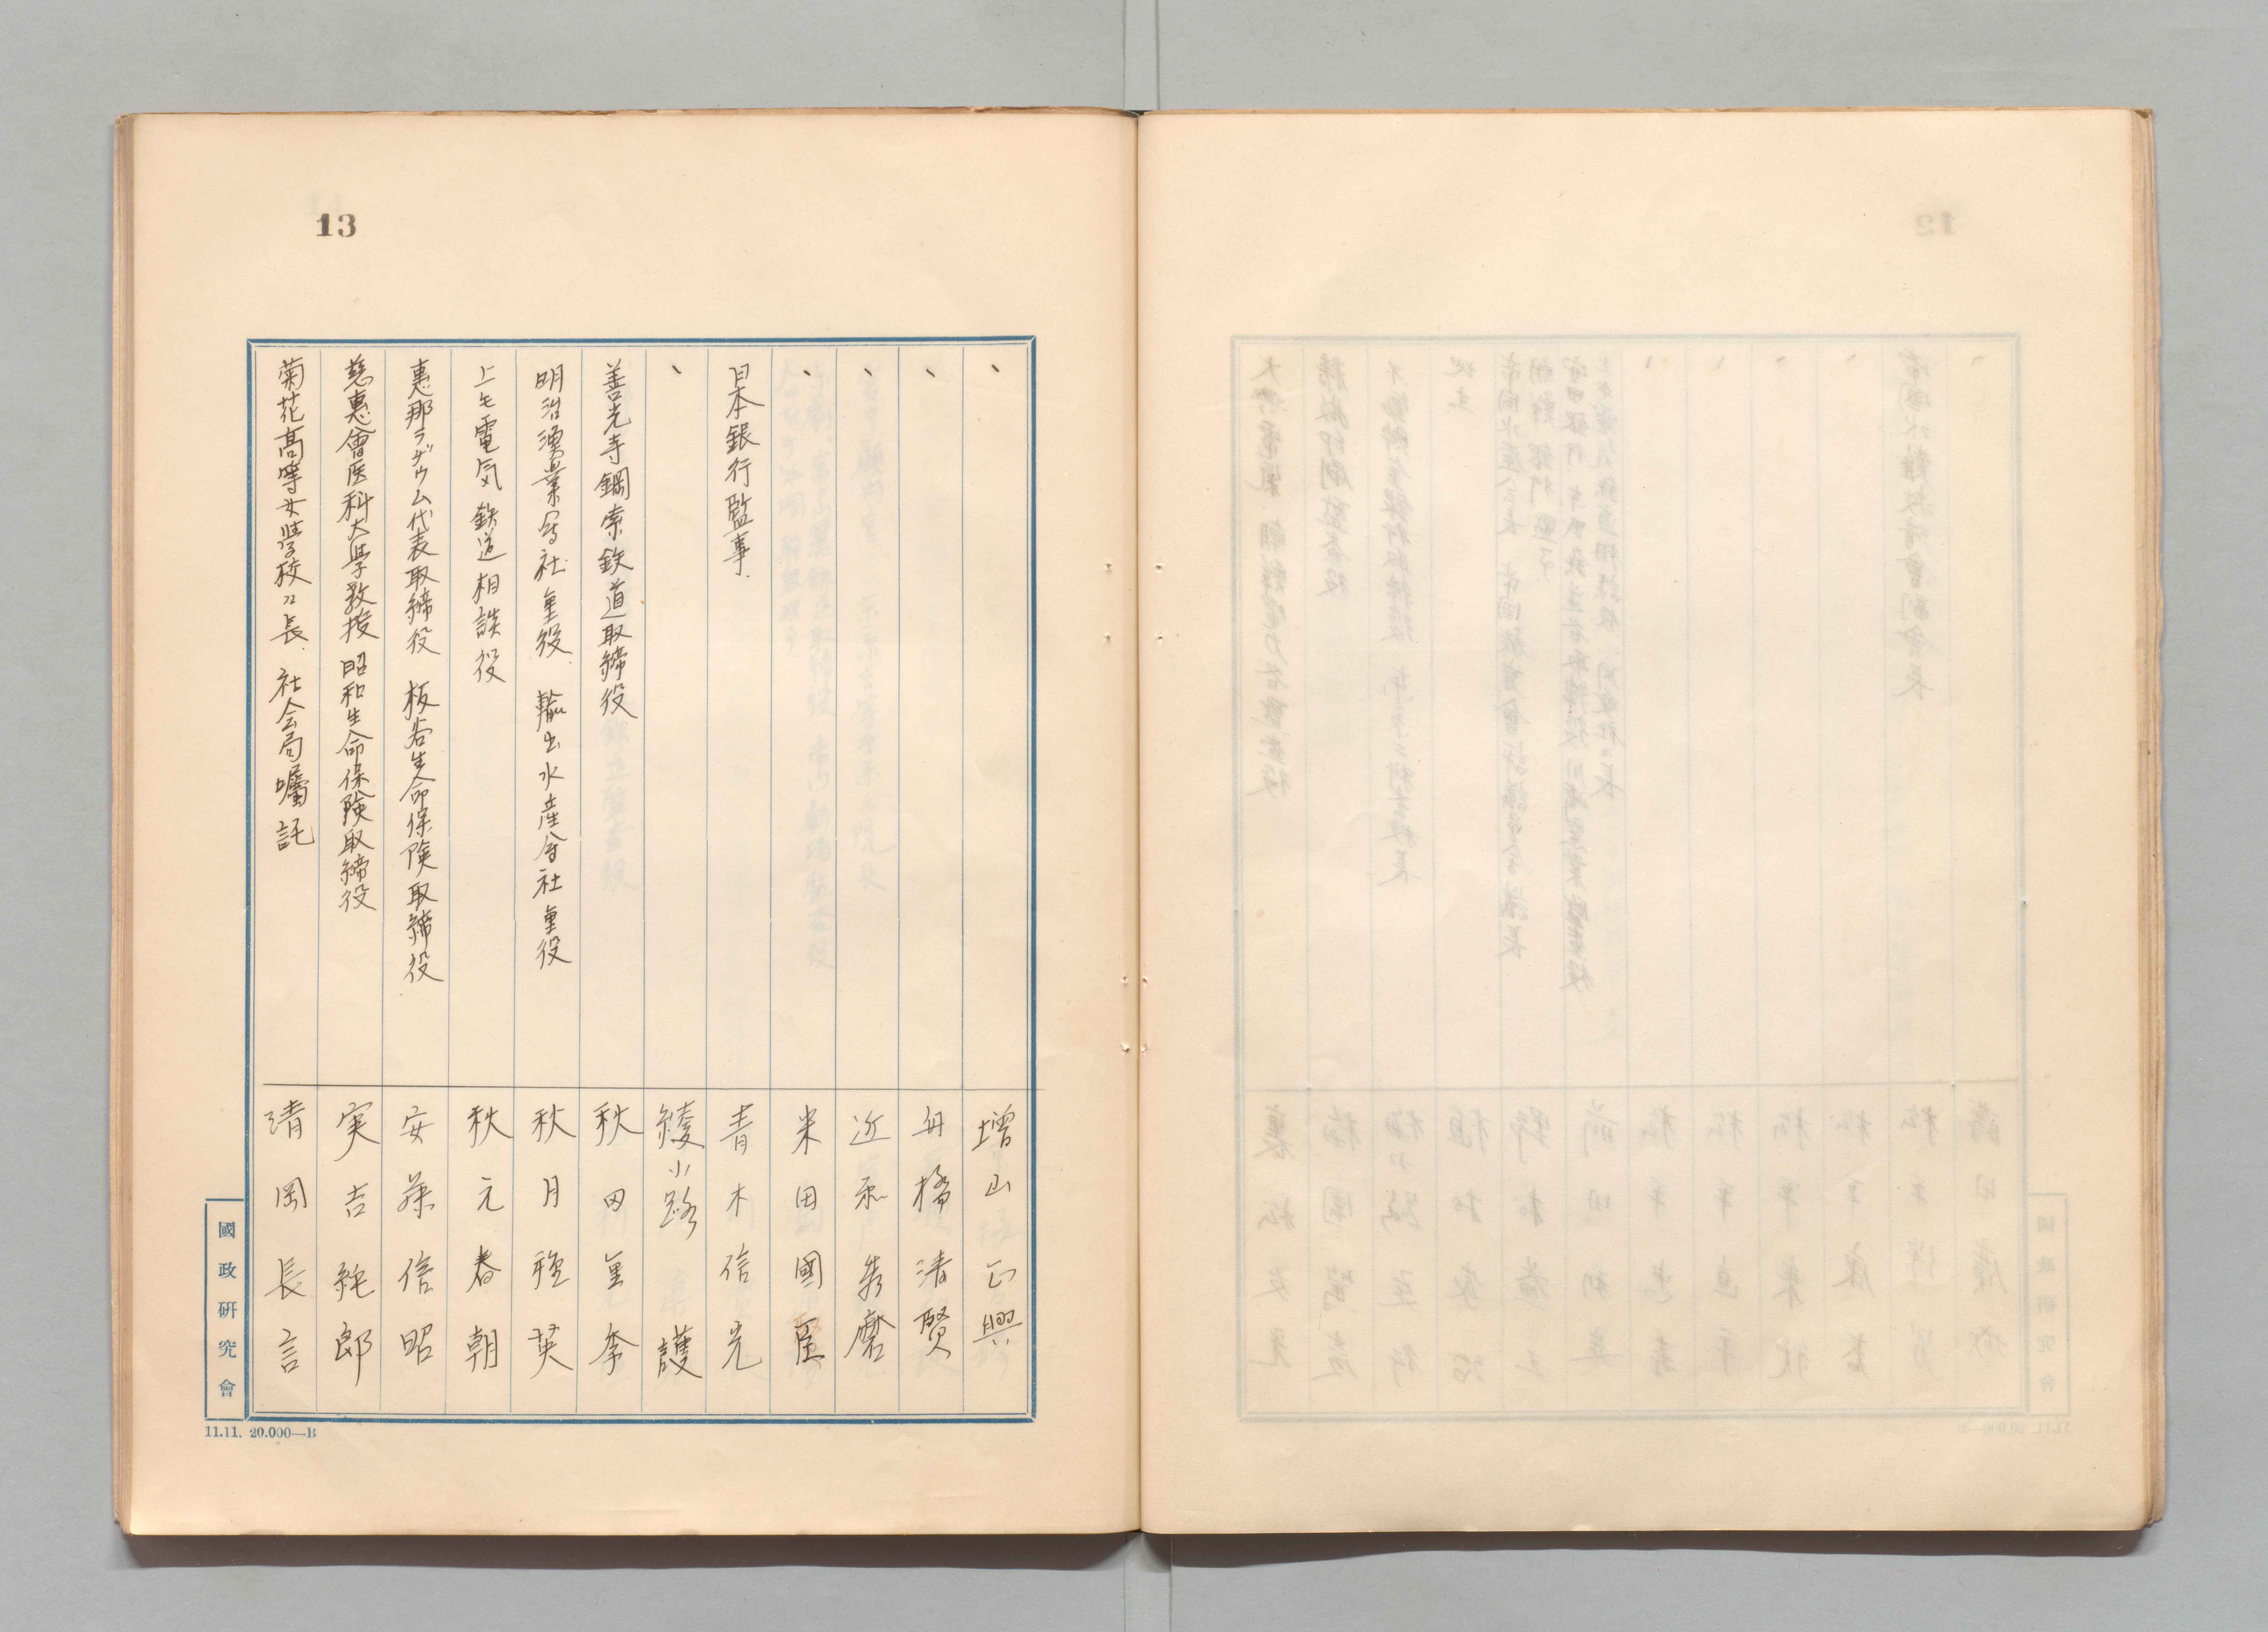 13
、 増山正興
、 舟橋清賢
、 近衛秀麿
、 米田國臣
日本銀行監事 青木信光
、 綾小路護
善光寺鋼索鉄道取締役 秋田重季
明治漁業会社重役 輸出水産会社重役 秋月種英
上毛電気鉄道相談役 秋元春朝
恵那ラヂウム代表取締役 板谷生命保険取締役 安藤信昭
慈恵會医科大学教授 昭和生命保険取締役 実吉純郎
菊花高等女学校々長 社会局嘱託 清岡長言
國政研究會
11.11. 20.000—B